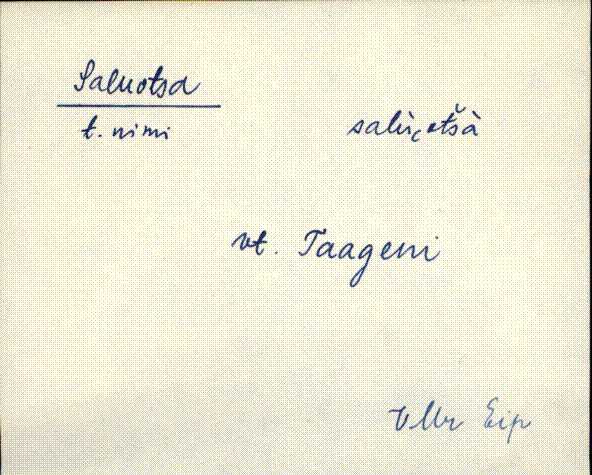 Saluotsa
t. nimi
salu̬otšà
vt. Taageni
V Mr Eip